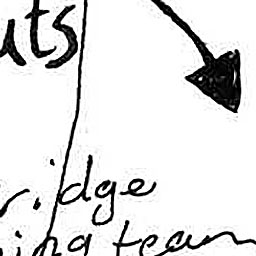 uts
ridge
ing team